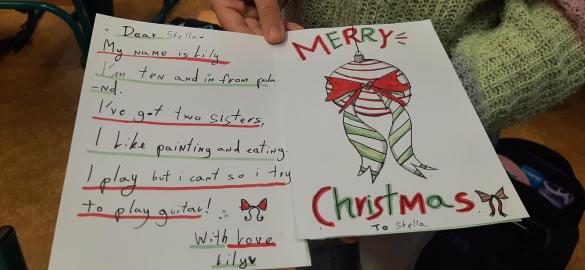 Dear Stella
My name is Lily
I'm ten and i'm from pola
-nd.
I've got two sisters,
I Like painting and eating.
I play but i cant so i try
to play guitar!
With Love
Lily
MERRY
Christmas
To Stella